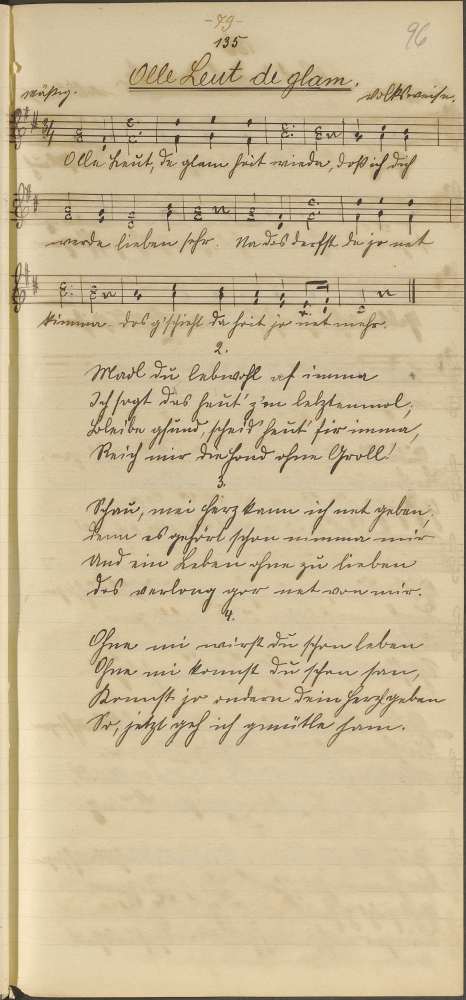 -79-
135
96
Olle Leut de glam.
mäßig.
Volksweise.
Olle Leut, de glam heit wieda, doß ich dich
werde lieben sehr. Na das derfst du jo net
kimma das g'schieht da heit jo net mehr.
2.
Madl du lebwohl af imma
Ich sogt das heut' z'm letztenmol,
Bleibe gsund, scheid' heut' für imma,
Reich mir die Hond ohne Groll!
3.
Schau, mei Herz kann ich net geben,
denn es gehört schon nimma mir
Und ein Leben ohne zu lieben
des verlong gor net von mir.
4.
Ohne mi wirst du schon leben
Ohne mi konnst du schon san,
Konnst jo ondern dein Herz geben
So, jetzt geh ich gmütle ham.